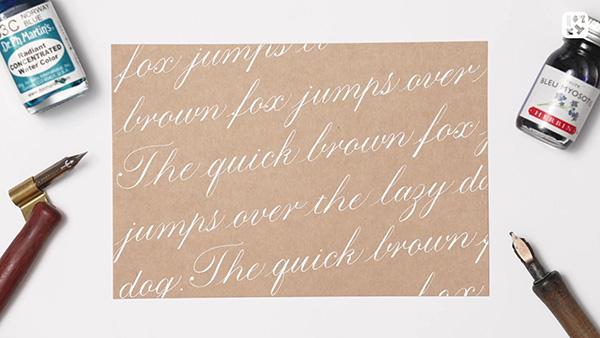 3C NORWAY
BLUE
Dr. Ph. Martin's
Radiant
CONCENTRATED
Water Color
fox jumps
brown fox jumps over
The quick brown fox
jumps over the lazy
dog. The quick brown
fox
BLEU MYOSOTIS
HERBIN